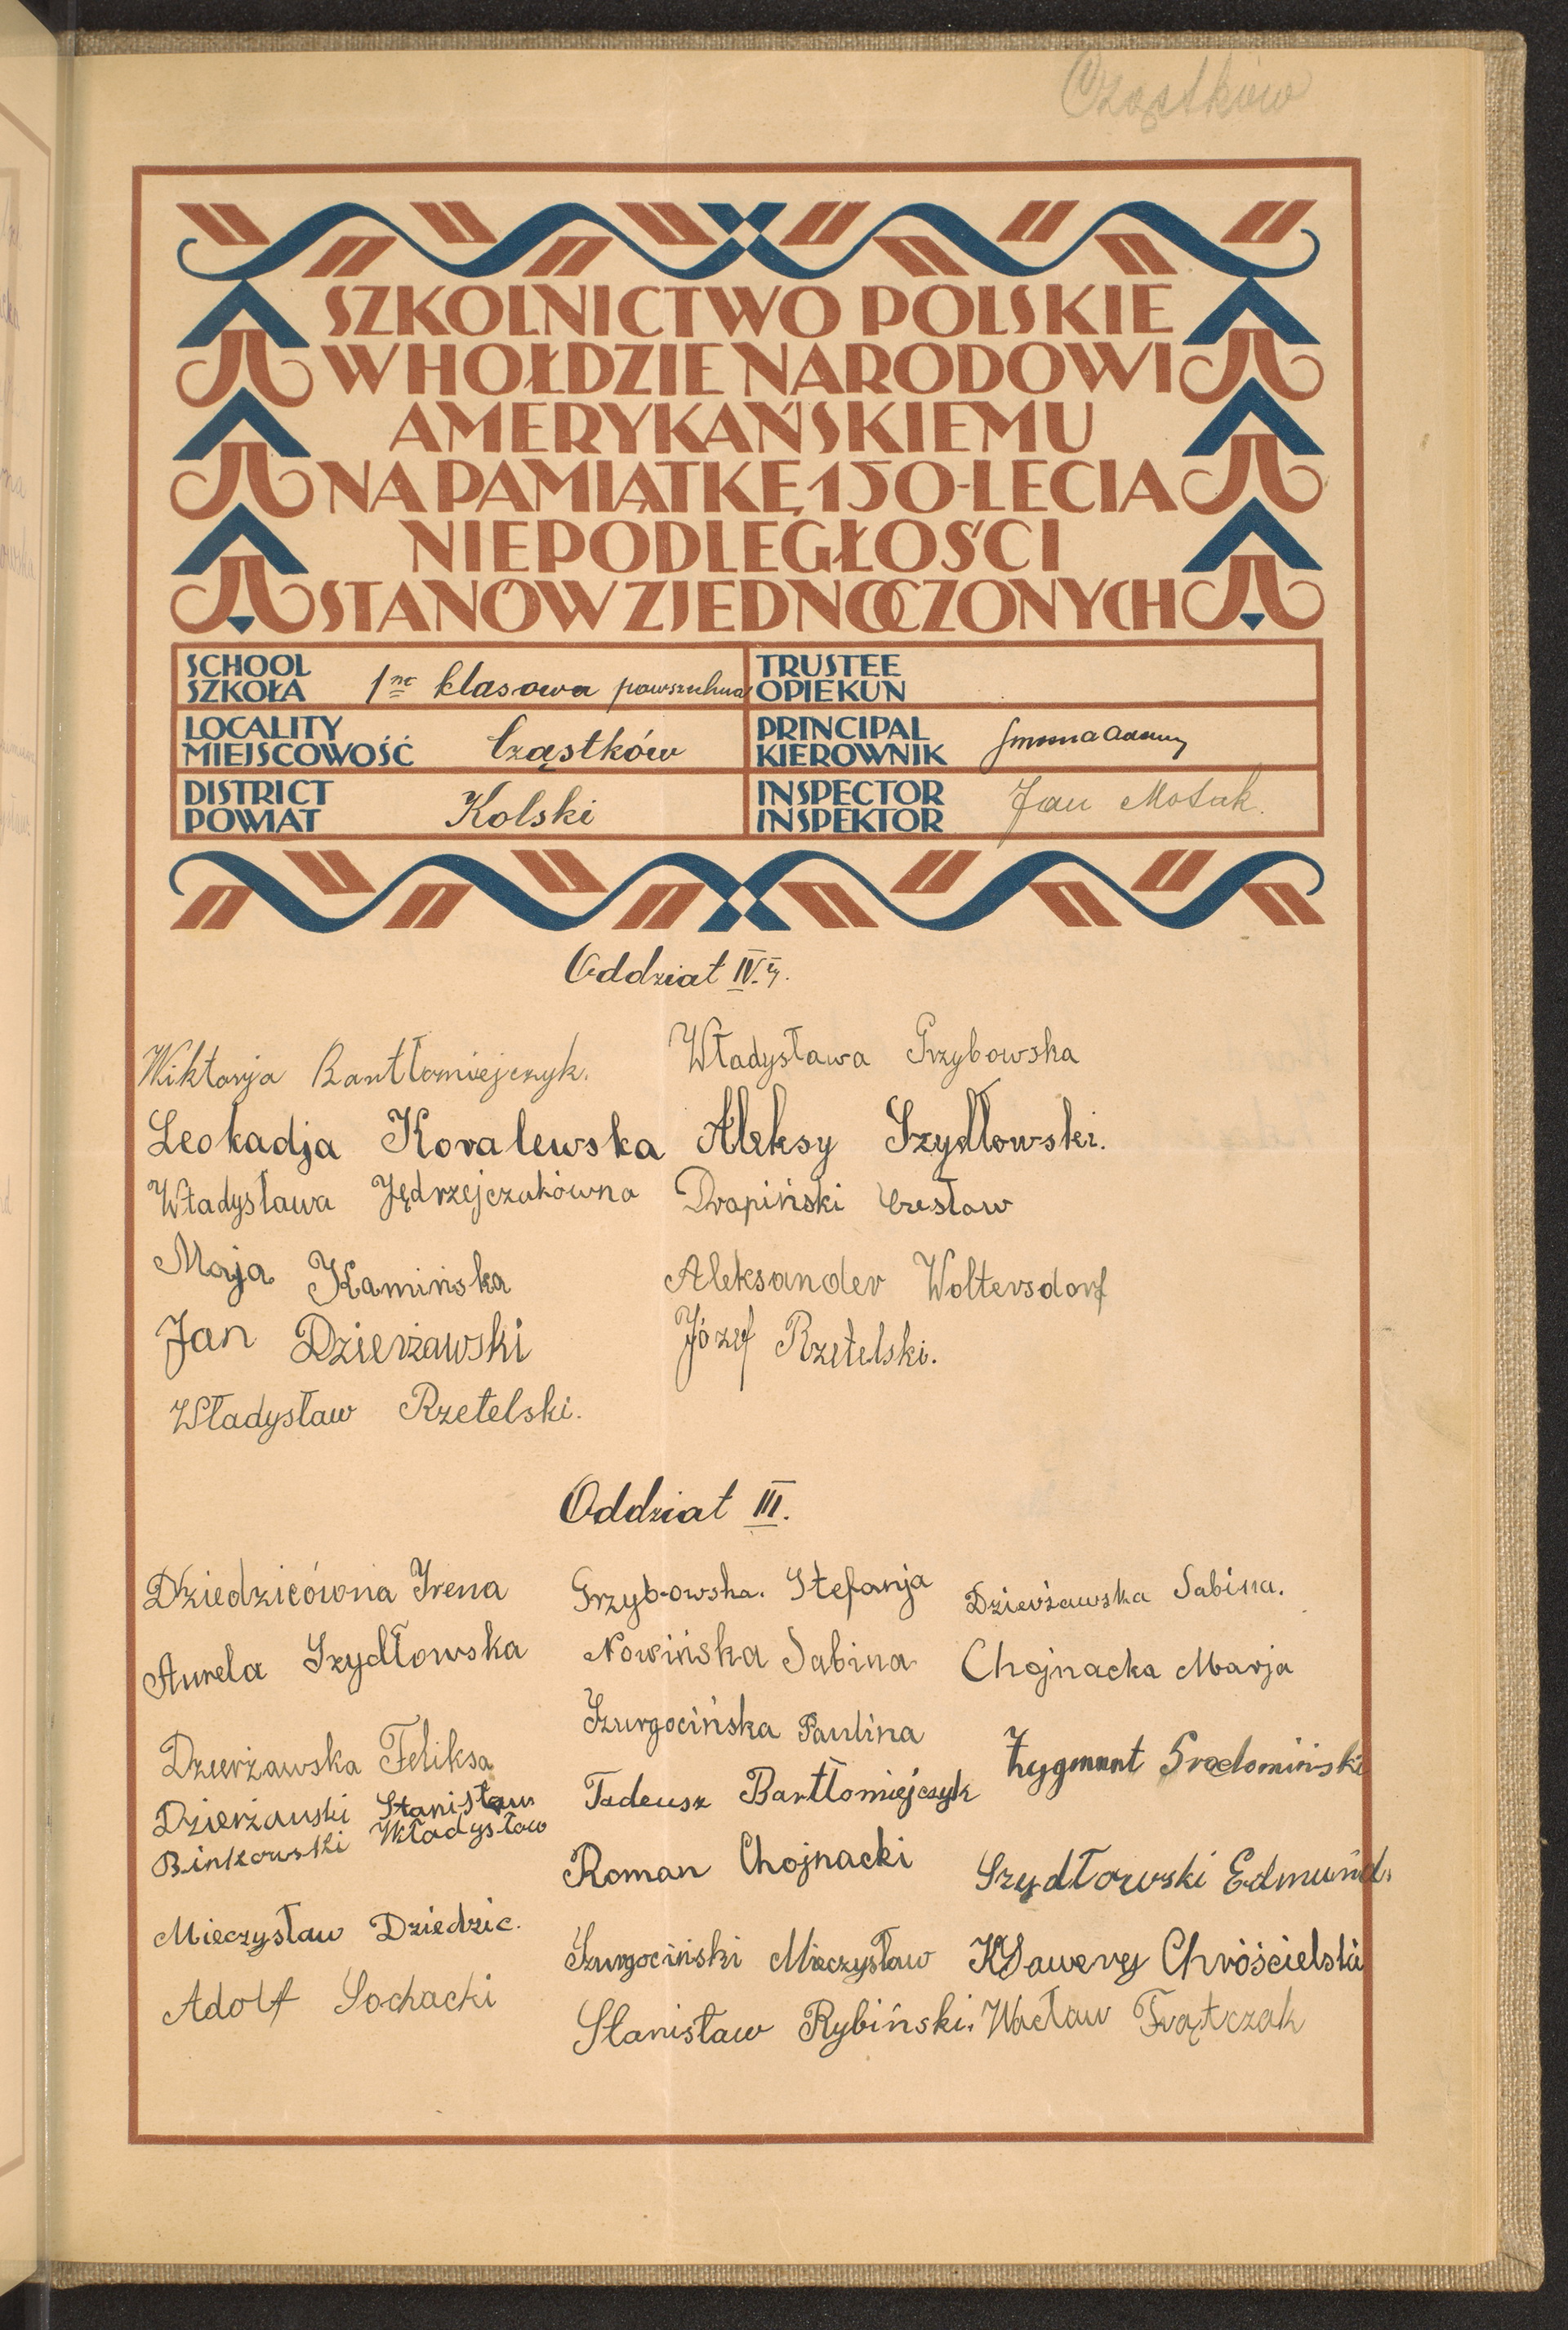 Cząstków
SZKOLNICTWO POLSKIE
W HOŁDZIE NARODOWI
AMERYKAŃSKIEMU
NA PAMIĄTKĘ 150-LECIA
NIEPODLEGŁOŚCI
STANÓW ZJEDNOCZONYCH
SCHOOL
SZKOŁA 1no klasowa powszechna
TRUSTEE
OPIEKUN
LOCALITY
MIEJSCOWOŚĆ Cząstków
PRINCIPAL
KIEROWNIK
DISTRICT
POWIAT Kolski
INSPECTOR
INSPEKTOR Jan
Oddział IV.
Wiktorja Bartłomiejczyk.
Władysława Grzybowska
Leokadja Kovalewska
Aleksy Szydłowski.
Władysława Jędrzejczakówna
Drapiński Czesław
Marja Kamińska
Aleksander Woltersdorf
Jan Dzierżawski
Józef Rzetelski.
Władysław Rzetelski.
Oddział III.
Dziedzicówna Irena
Grzybowska. Stefanja
Dzierżawska Sabina.
Aurela Szydłowska
Nowińska Sabina
Chojnacka Marja
Szurgocińska Paulina
Dzierżawska Feliksa
Zygmunt Sradomiński
Dzierżawski Stanisław
Tadeusz Bartłomiejczyk
Binkowski Władysław
Roman Chojnacki
Szydłowski Edmund.
Mieczysław Dziedzic.
Szurgociński Mieczysław
KSawery Chróścielski
Adolf Sochacki
Stanisław Rybiński.
Wacław Frątczak